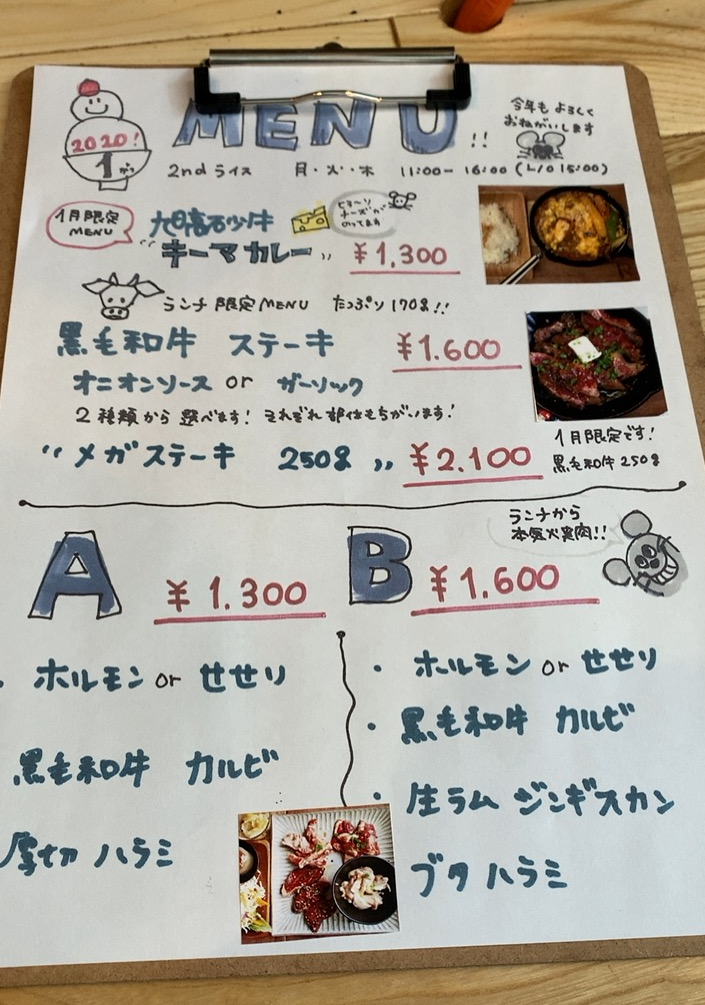 MENU!!
今年も よろしく
おねがいします
2020!
1がつ
2nd ライス 月・火・木 11:00-16:00 (L/O 15:00)
1月限定
MENU
旭高砂牛
とろ〜り
チーズが
のってます
"キーマカレー" ¥1,300
ランチ限定MENU たっぷり170g!!
黒毛和牛 ステーキ ¥1.600
オニオンソース or ガーリック
2種類から選べます! それぞれ部位もちがいます!
"メガステーキ 250g" ¥2.100
1月限定です!
黒毛和牛250g
ランチから
本気焼肉!!
A ¥1.300
・ホルモン or せせり
黒毛和牛 カルビ
厚切 ハラミ
B ¥1.600
・ホルモン or せせり
・黒毛和牛 カルビ
・生ラム ジンギスカン
ブタ ハラミ